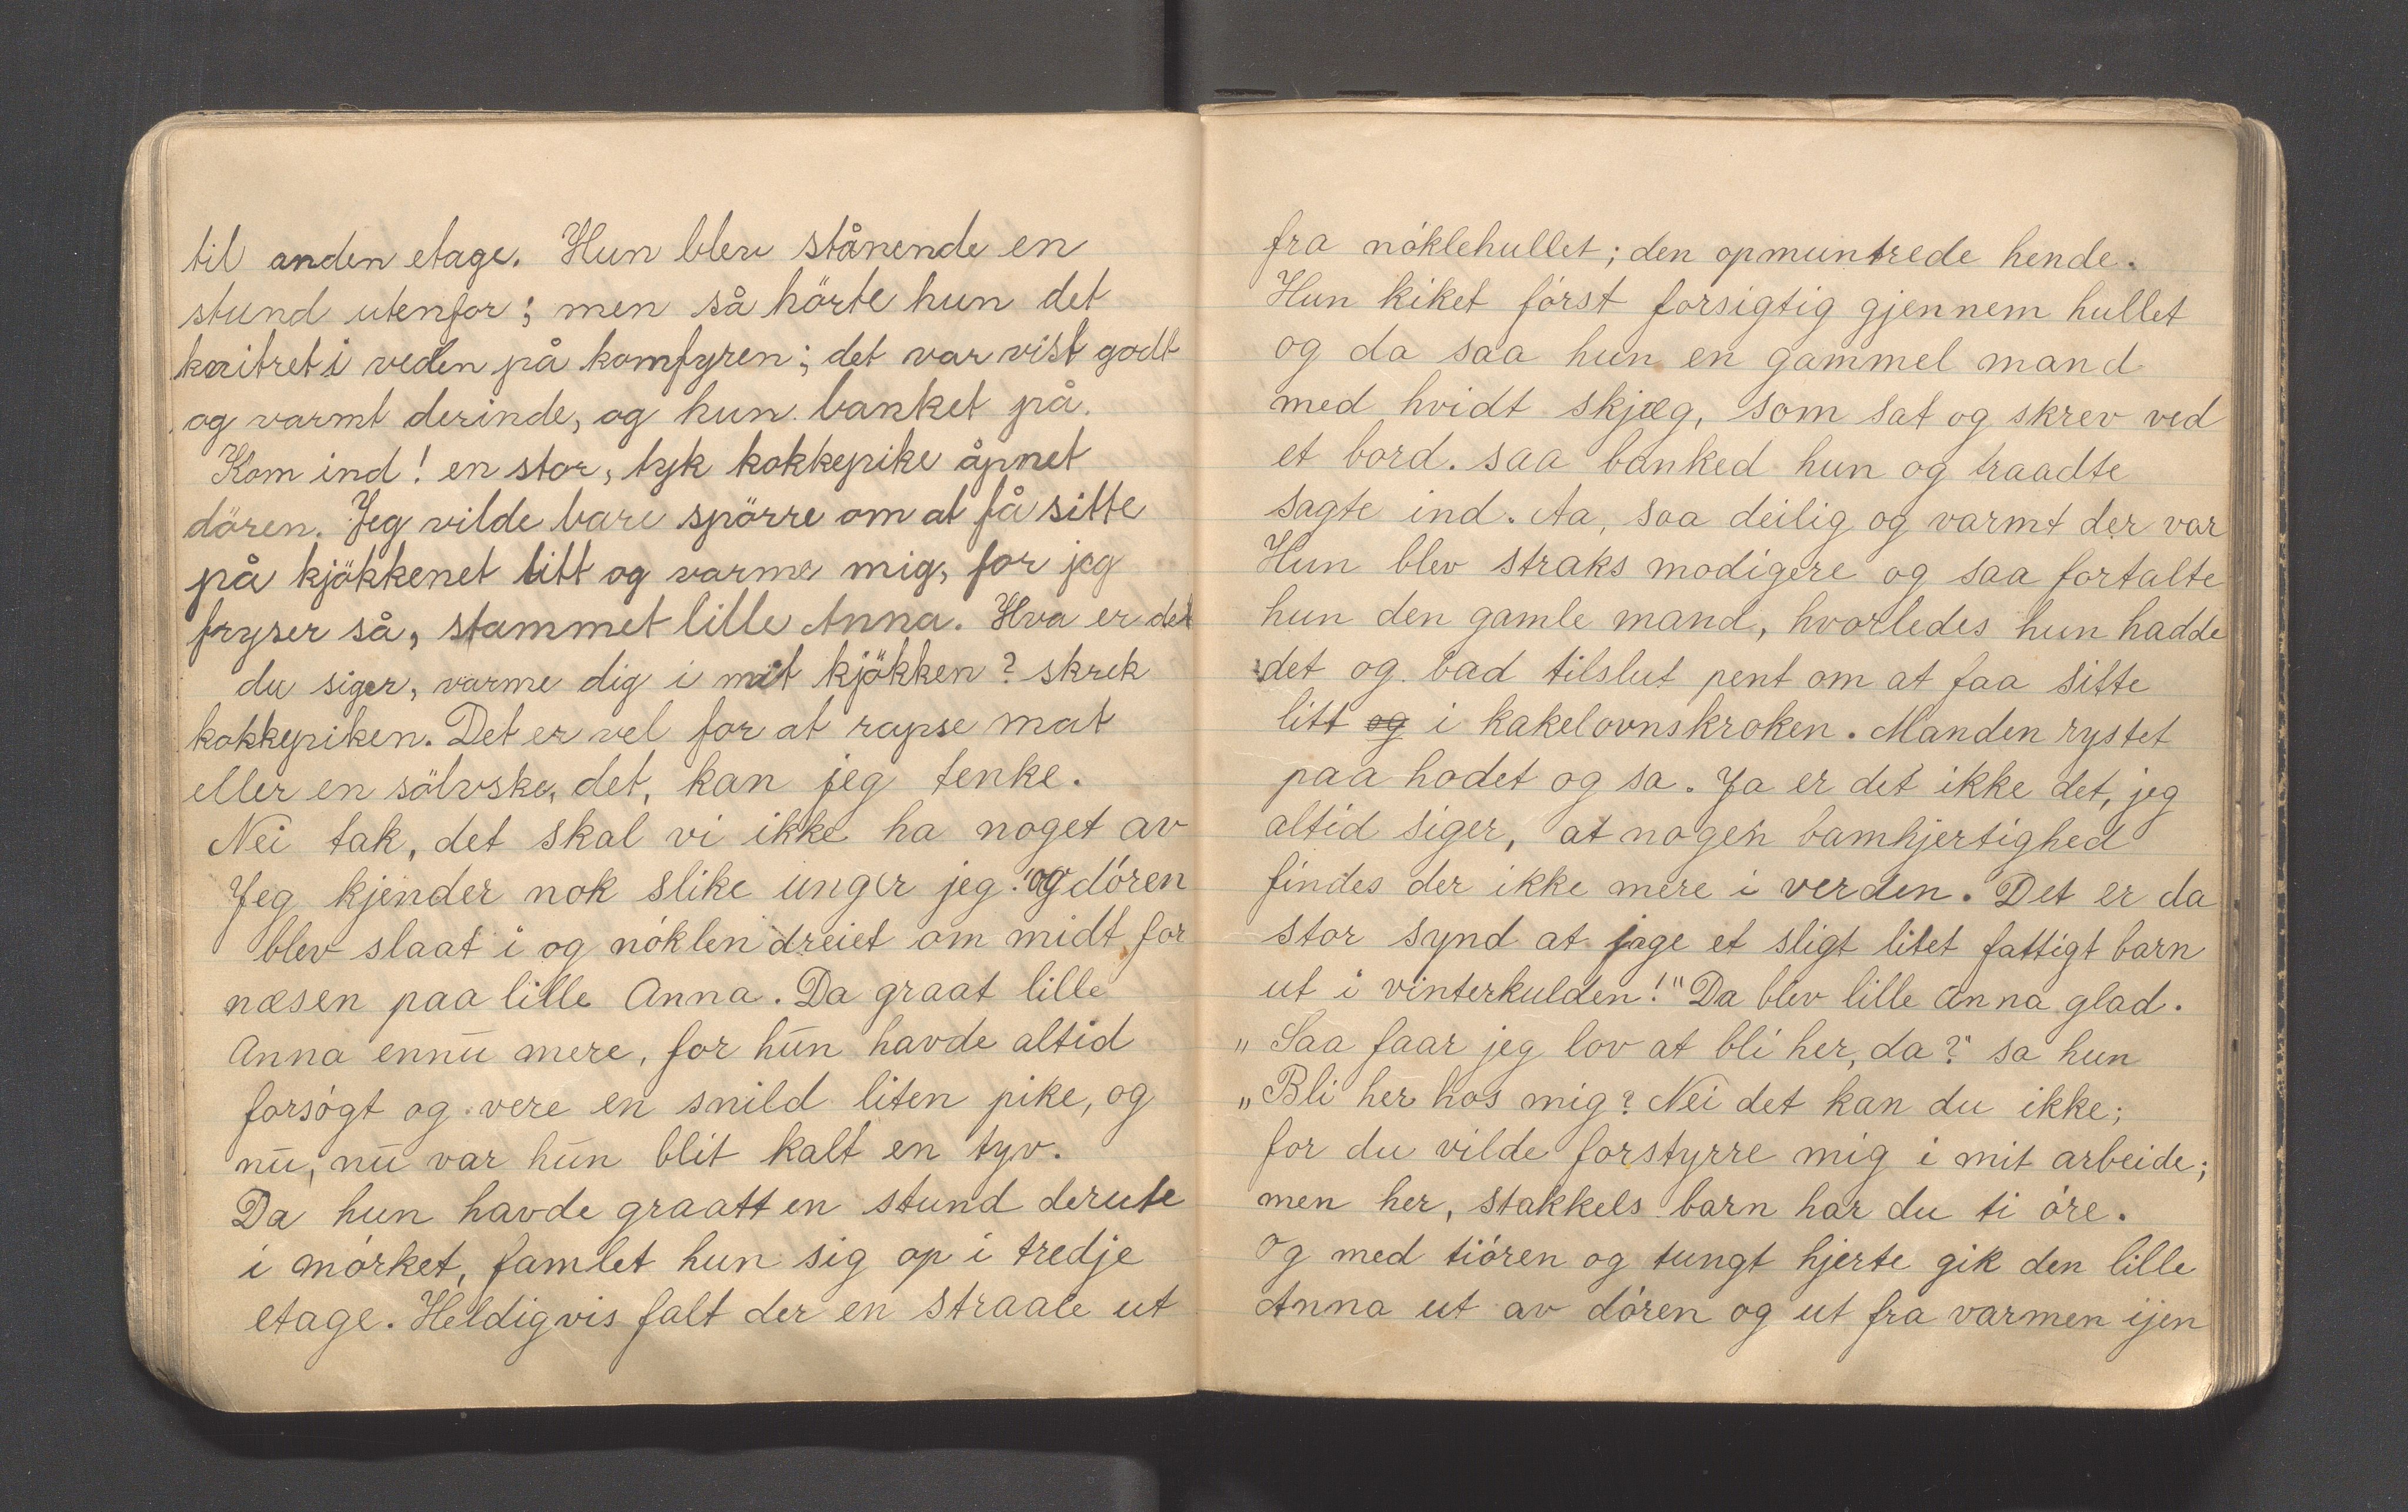 til anden etage. Hun blev stånende en
stund utenfor; men så hörte hun det
knitret i veden på komfyren; det var vist godt
og varmt derinde, og hun banket på.
Kom ind! en stor, tyk kokkepike åpnet
dören. Jeg vilde bare spörre om at få sitte
på kjökkenet litt og varme mig, for jeg
fryser så, stammet lille Anna. Hva er det
du siger, varme dig i mit kjökken? skrek
kokkepiken. Det er vel for at rapse mat
eller en sölvske, det, kan jeg tenke.
Nei tak, det skal vi ikke ha noget av
Jeg kjender nok slike unger jeg!" og dóren
blev slaat i og nóklen dreiet om midt for
næsen paa lille Anna. Da graat lille
Anna ennū mere, for hūn havde altid
forsógt og vere en snild liten pike, og
nū, nū var hūn blit kalt en tyv.
Da hun havde graatt en stund derute
i mórket, famlet hun sig op i tredje
etage. Heldigvis falt der en straale ut
fra nóklehullet; den opmuntrede hende.
Hun kiket fórst forsigtig gjennem hullet
og da saa hun en gammel mand
med hvidt skjæg, som sat og skrev ved
et bord. saa banked hun og traadte
sagte ind. Aa, saa deilig og varmt der var
Hun blev straks modigere og saa fortalte
hun den gamle mand, hvorledes hun hadde
det og bad tilslut pent om at faa sitte
litt og i kakelovnskroken. Manden rystet
paa hodet og sa. Ja er det ikke det, jeg
altid siger, at nogen bamhjertighed
findes der ikke mere i verden. Det er da
stor synd at jage et sligt litet fattigt barn
ut i vinterkulden!" Da blev lille Anna glad.
„Saa faar jeg lov at bli her, da?" sa hun
„Bli her hos mig? Nei det kan du ikke;
for du vilde forstyrre mig i mit arbeide;
men her, stakkels barn har du ti óre.
Og med tióren og tungt hjerte gik den lille
Anna ut av dóren og ut fra varmen ijen